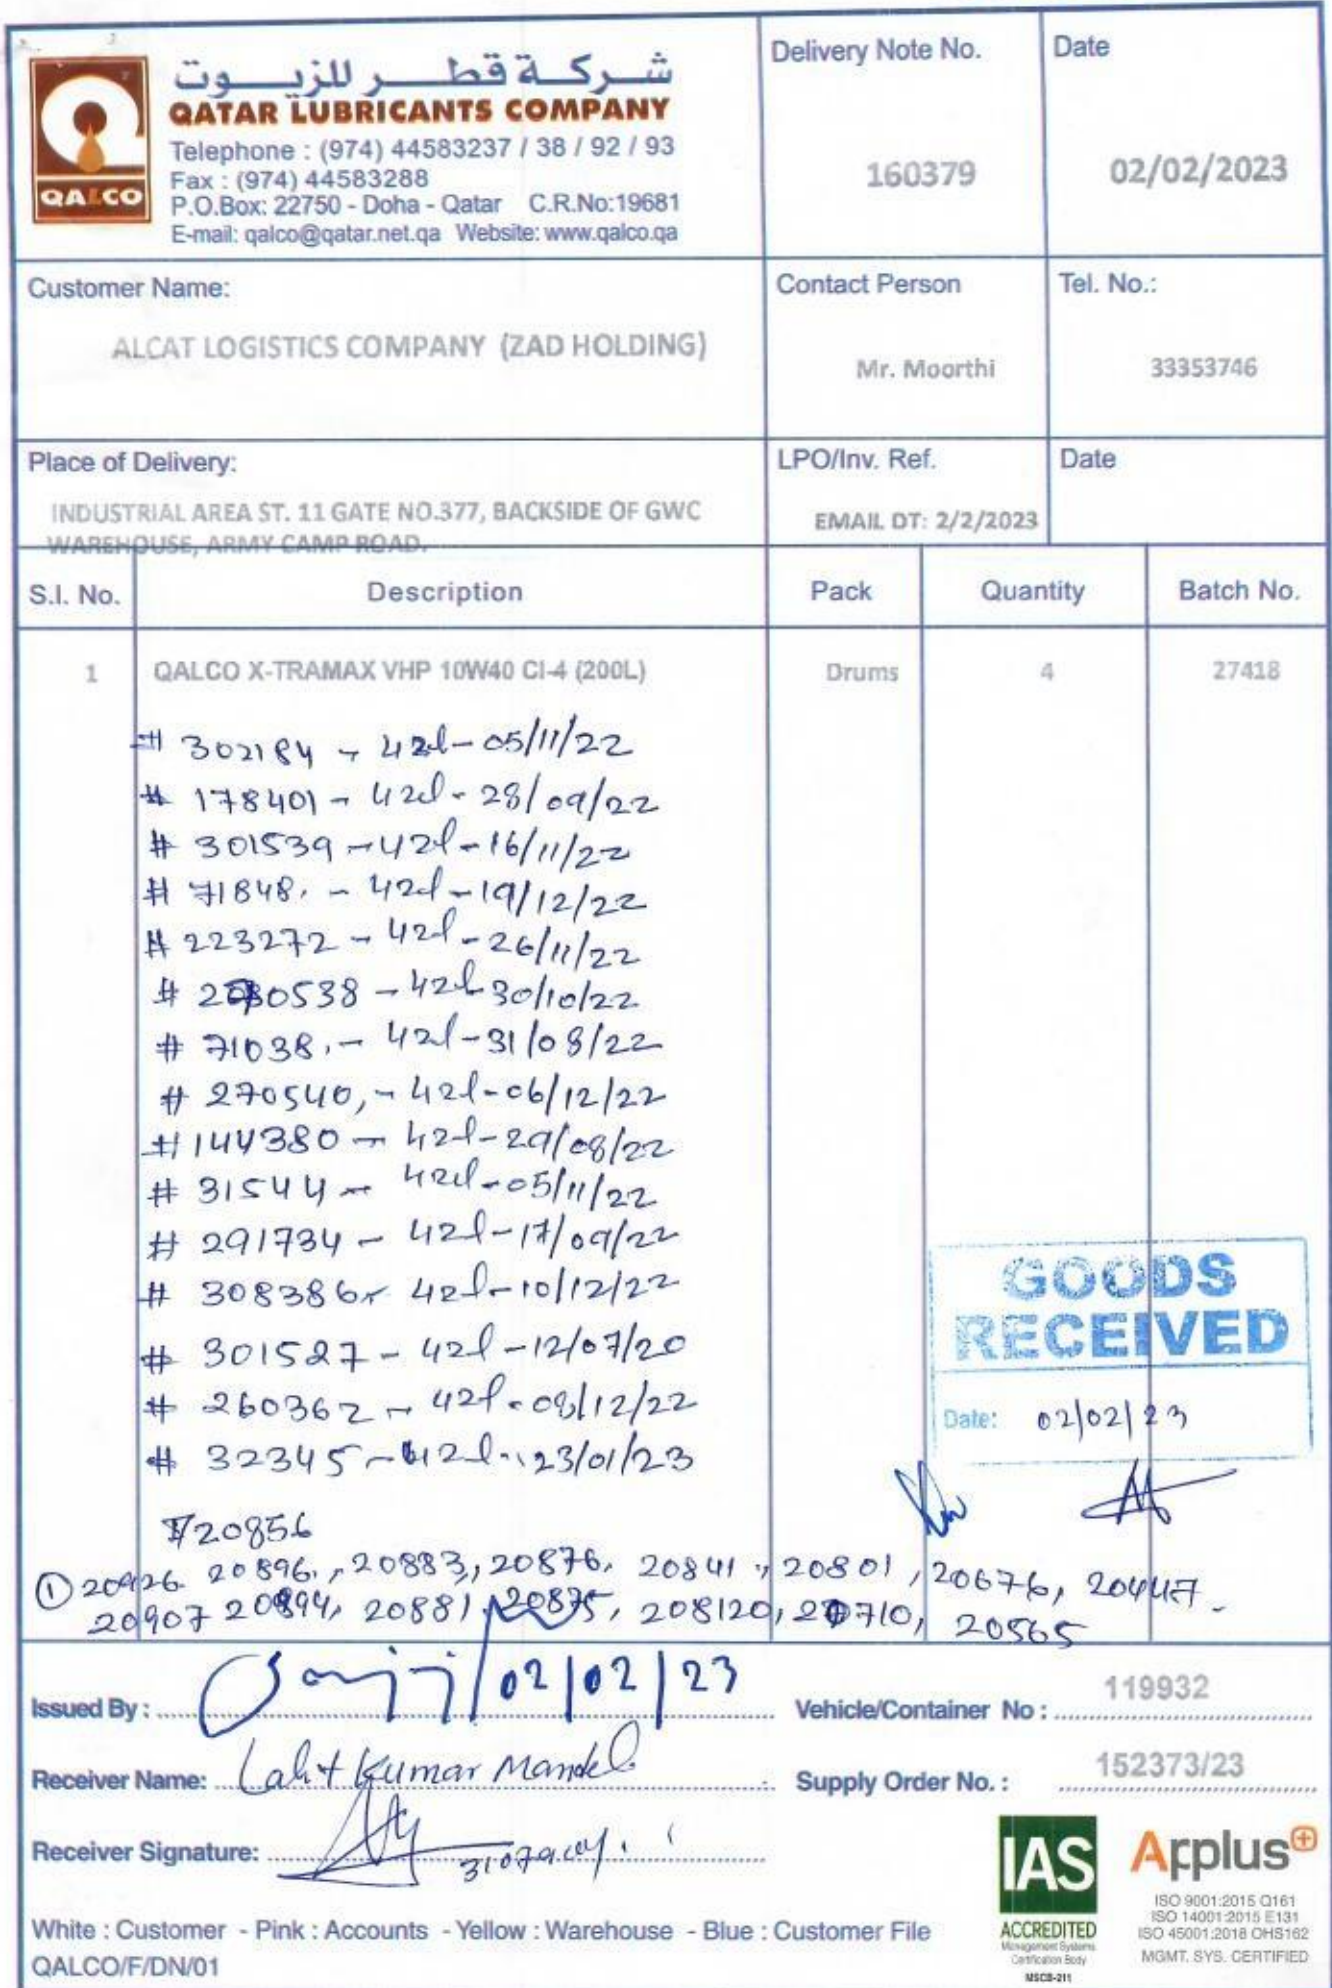 شركة قطر للزيوت
QATAR LUBRICANTS COMPANY
Telephone : (974) 44583237 / 38 / 92 / 93
Fax : (974) 44583288
P.O.Box: 22750 - Doha - Qatar C.R.No:19681
E-mail: qalco@qatar.net.qa Website: www.qalco.qa
QALCO
Delivery Note No.
160379
Date
02/02/2023
Customer Name:
ALCAT LOGISTICS COMPANY (ZAD HOLDING)
Contact Person
Mr. Moorthi
Tel. No.:
33353746
Place of Delivery:
INDUSTRIAL AREA ST. 11 GATE NO.377, BACKSIDE OF GWC
WAREHOUSE, ARMY CAMP ROAD.
LPO/Inv. Ref.
EMAIL DT: 2/2/2023
Date
S.I. No. Description Pack Quantity Batch No.
1 QALCO X-TRAMAX VHP 10W40 CI-4 (200L) Drums 4 27418
# 302184 - 42l - 05/11/22
# 178401 - 42l - 28/09/22
# 301539 - 42l - 16/11/22
# 71848. - 42l - 19/12/22
# 223272 - 42l - 26/11/22
# - 42l 30/10/22
# 71038. - 42l - 31/08/22
# 270540, - 42l - 06/12/22
# 144380 - 42l - 29/08/22
# 31544 - 42l - 05/11/22
# 291734 - 42l - 17/09/22
# 308386 - 42l - 10/12/22
# 301527 - 42l - 12/07/20
# 260362 - 42l - 08/12/22
# 32345 - 42l - 23/01/23
GOODS
RECEIVED
Date: 02/02/23
20856
① 20926 20896, 20883, 20876, 20841, 20801, 20676, 20447
20907 20894, 20881, 20875, 208120, 20710, 20565
Issued By : 02/02/23
Vehicle/Container No : 119932
Receiver Name: Lalit Kumar Mandel
Supply Order No. : 152373/23
Receiver Signature:
IAS
ACCREDITED
Management Systems
Certification Body
MSCB-211
Applus+
ISO 9001:2015 Q161
ISO 14001:2015 E131
ISO 45001:2018 OHS162
MGMT. SYS. CERTIFIED
White : Customer - Pink : Accounts - Yellow : Warehouse - Blue : Customer File
QALCO/F/DN/01